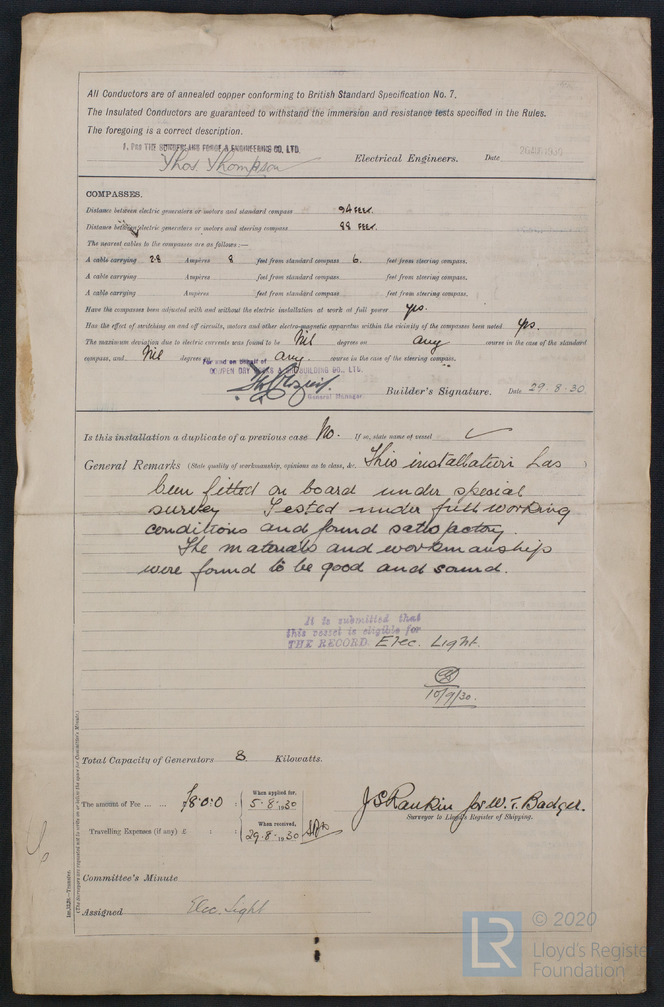 All Conductors are of annealed copper conforming to British Standard Specification No. 7.
The Insulated Conductors are guaranteed to withstand the immersion and resistance tests specified in the Rules.
The foregoing is a correct description.
THE SUNDERLAND FORGE & ENGINEERING CO. LTD.
Thos. Thompson Electrical Engineers. Date
COMPASSES.
Distance between electric generators or motors and standard compass 94 FEET.
Distance between electric generators or motors and steering compass 88 FEET.
The nearest cables to the compasses are as follows:—
A cable carrying 28 Ampères 8 feet from standard compass 6. feet from steering compass.
A cable carrying Ampères feet from standard compass feet from steering compass.
A cable carrying Ampères feet from standard compass feet from steering compass.
Have the compasses been adjusted with and without the electric installation at work at full power yes.
Has the effect of switching on and off circuits, motors and other electro-magnetic apparatus within the vicinity of the compasses been noted yes.
The maximum deviation due to electric currents was found to be Nil degrees on any course in the case of the standard
compass, and Nil degrees on any. course in the case of the steering compass.
For and on behalf of
COWPEN DRY DOCKS & SHIPBUILDING CO., LTD.
General Manager. Builder's Signature. Date 29.8.30.
Is this installation a duplicate of a previous case No. If so, state name of vessel
General Remarks (State quality of workmanship, opinions as to class, &c. This installation has
been fitted on board under special
survey Tested under full working
conditions and found satisfactory.
The materials and workmanship
were found to be good and sound.
It is submitted that
this vessel is eligible for
THE RECORD. Elec. Light.
10/9/30.
Total Capacity of Generators 8 Kilowatts.
The amount of Fee ... ... £8:0:0 : When applied for, 5.8.1930
Travelling Expenses (if any) £ : : When received, 29.8.1930
J S Rankin for W. T. Badger.
Surveyor to Lloyd's Register of Shipping.
Committee's Minute
Assigned Elec. Light
Im. 3,28.—Transfer.
(The Surveyors are requested not to write on or below the space for Committee's Minute.)
LR © 2020
Lloyd's Registe
Foundation